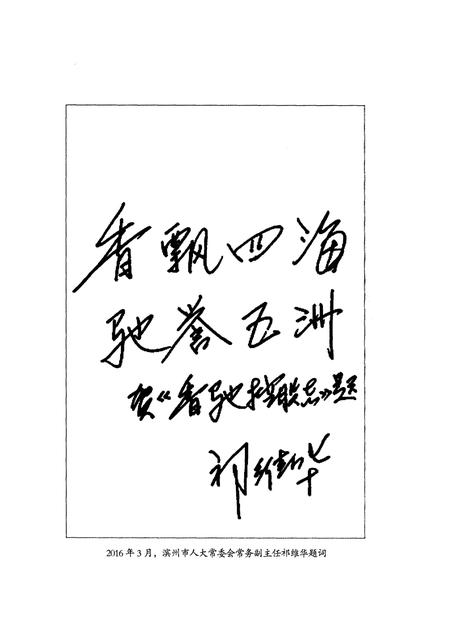 香飘四海
驰誉五洲
贺《香驰控股志》题
祁维华
2016年3月，滨州市人大常委会常务副主任祁维华题词